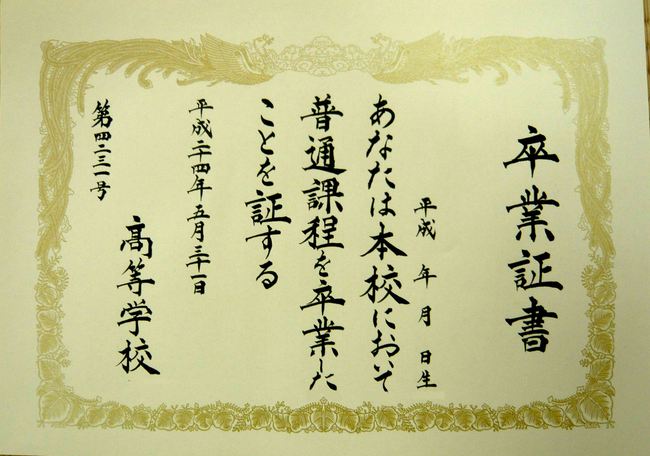 卒業証書
平成　年　月　日生
あなたは本校において
普通課程を卒業した
ことを証する
平成二十四年五月三十一日
第四二三一号
高等学校